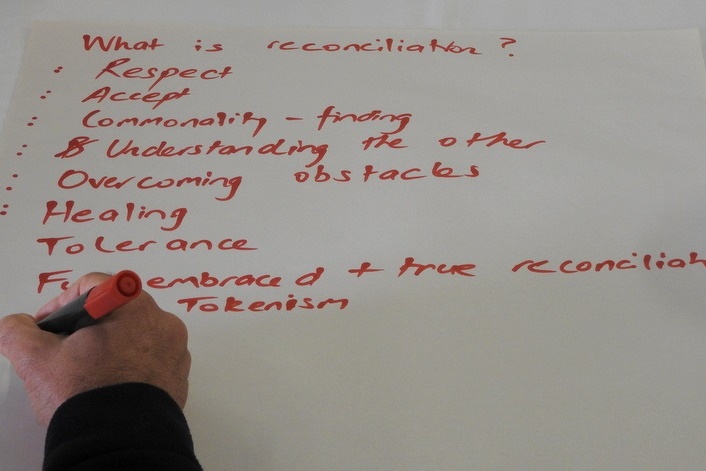 What is reconciliation ?
: Respect
: Accept
: Commonality - finding
: & Understanding the other
: Overcoming obstacles
: Healing
Tolerance
embraced + true
Tokenism